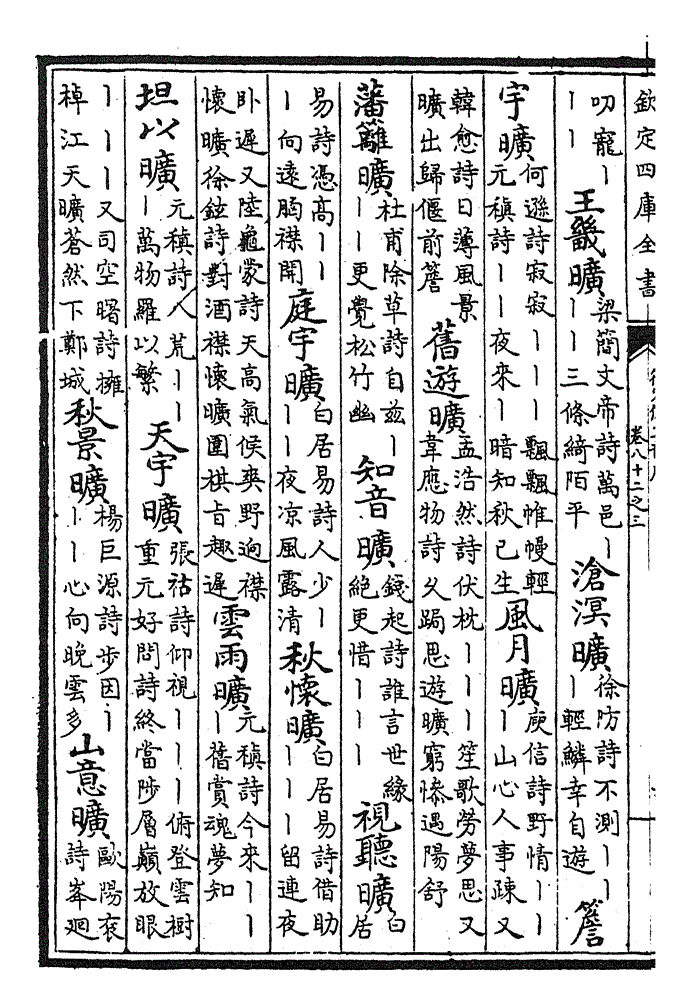 欽定四庫全書
卷八十二之三
叨寵丨
丨丨
王畿曠
梁簡文帝詩萬邑丨
丨丨三條綺陌平
滄溟曠
徐防詩不測丨丨
丨輕鱗幸自遊
簷
宇曠
何遜詩寂寂丨丨丨飄飄帷幔輕
元稹詩丨丨夜來丨暗知秋已生
風月曠
庾信詩野情丨丨
丨山心人事疎又
韓愈詩日薄風景
曠出歸偃前簷
舊遊曠
孟浩然詩伏枕丨丨丨笙歌勞夢思又
韋應物詩久跼思遊曠窮慘遇陽舒
藩籬曠
杜甫除草詩自兹丨
丨丨更覺松竹幽
知音曠
錢起詩誰言世緣
絶更惜丨丨丨
視聽曠
白
居
易詩憑高丨丨
丨向遠胸襟開
庭宇曠
白居易詩人少丨
丨丨夜凉風露清
秋懷曠
白居易詩借助
丨丨丨留連夜
卧遲又陸龜蒙詩天高氣候爽野逈襟
懷曠徐鉉詩對酒襟懷曠圍棋旨趣遲
雲雨曠
元稹詩今來丨丨
丨舊賞魂夢知
坦以曠
元稹詩八荒丨丨
丨萬物羅以繁
天宇曠
張祜詩仰視丨丨丨俯登雲樹
重元好問詩終當陟層巔放眼
丨丨丨又司空曙詩擁
棹江天曠蒼然下鄭城
秋景曠
楊巨源詩步因丨
丨丨心向晚雲多
山意曠
歐陽衮
詩峯迴